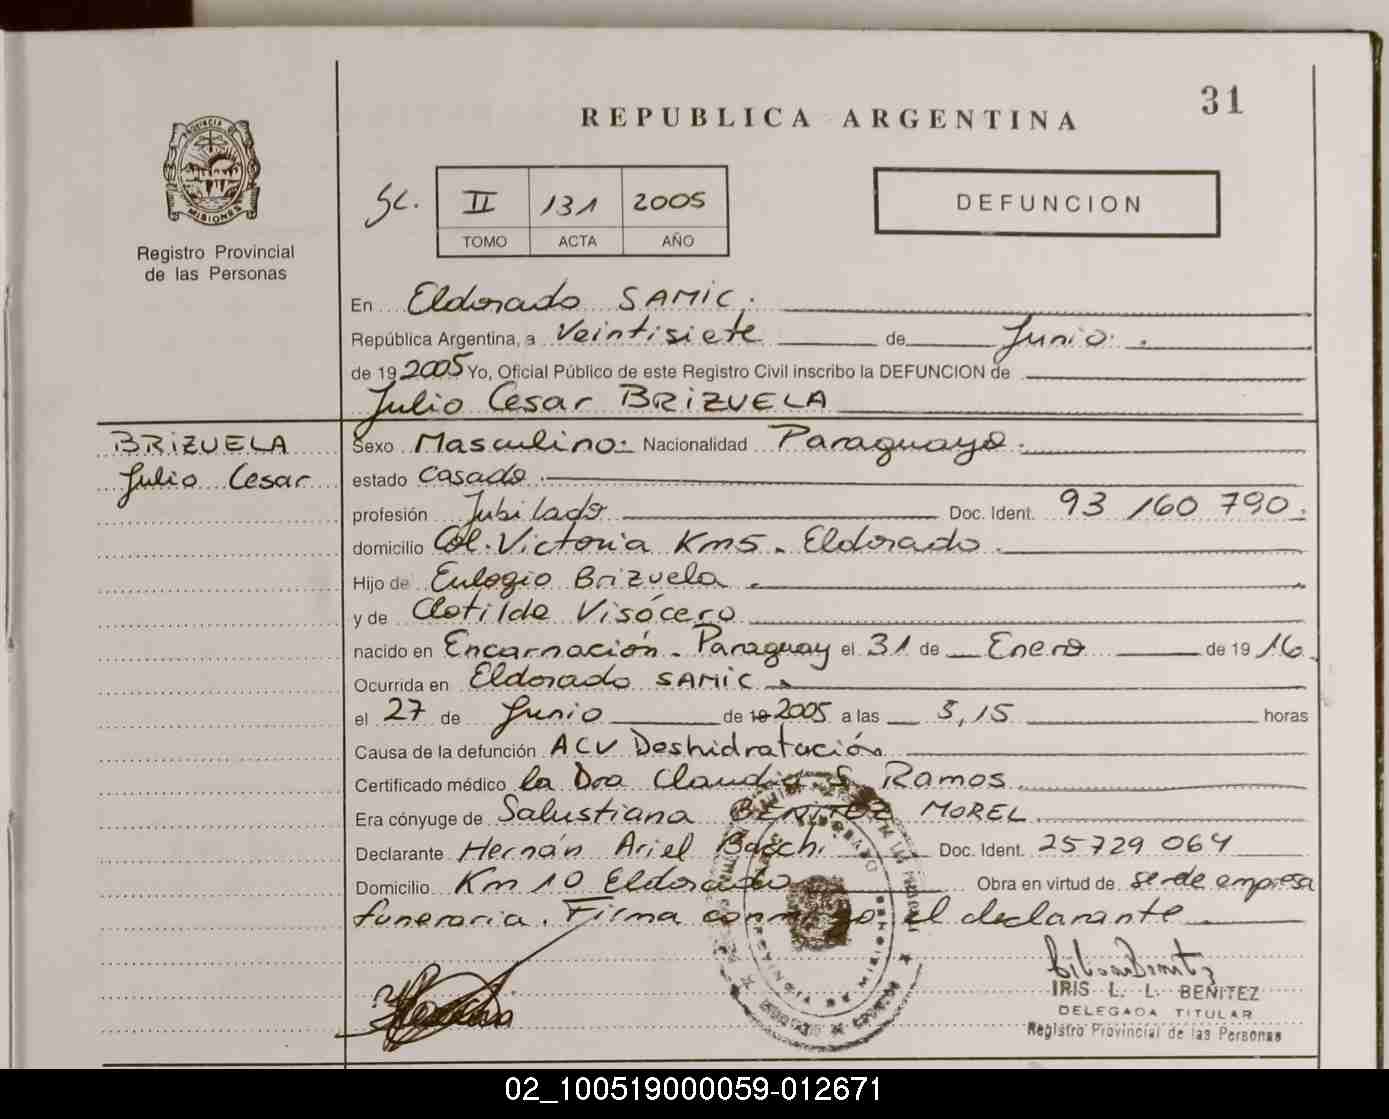 31
REPUBLICA ARGENTINA
PROVINCIA DE
MISIONES
Registro Provincial
de las Personas
Sc. II 131 2005
TOMO ACTA AÑO
DEFUNCION
En Eldorado SAMIC.
República Argentina, a Veintisiete de Junio.
de 19 2005 Yo, Oficial Público de este Registro Civil inscribo la DEFUNCION de
Julio Cesar BRIZUELA
BRIZUELA
Julio Cesar
Sexo Masculino. Nacionalidad Paraguaya.
estado Casado.
profesión Jubilado Doc. Ident. 93 160 790.
domicilio Col. Victoria Km5. Eldorado.
Hijo de Eulogio Brizuela.
y de Clotilde Visócero
nacido en Encarnación. Paraguay el 31 de Enero de 19 16.
Ocurrida en Eldorado SAMIC.
el 27 de Junio de 19 2005 a las 3,15 horas
Causa de la defunción ACV Deshidratación
Certificado médico la Dra Claudia S. Ramos.
Era cónyuge de Salustiana BENITEZ MOREL.
Declarante Hernán Ariel Bacchi Doc. Ident. 25 729 064
Domicilio Km 10 Eldorado Obra en virtud de ser de empresa
funeraria. Firma conmigo el declarante.
IRIS L. L. BENITEZ
DELEGADA TITULAR
Registro Provincial de las Personas
02_100519000059-012671